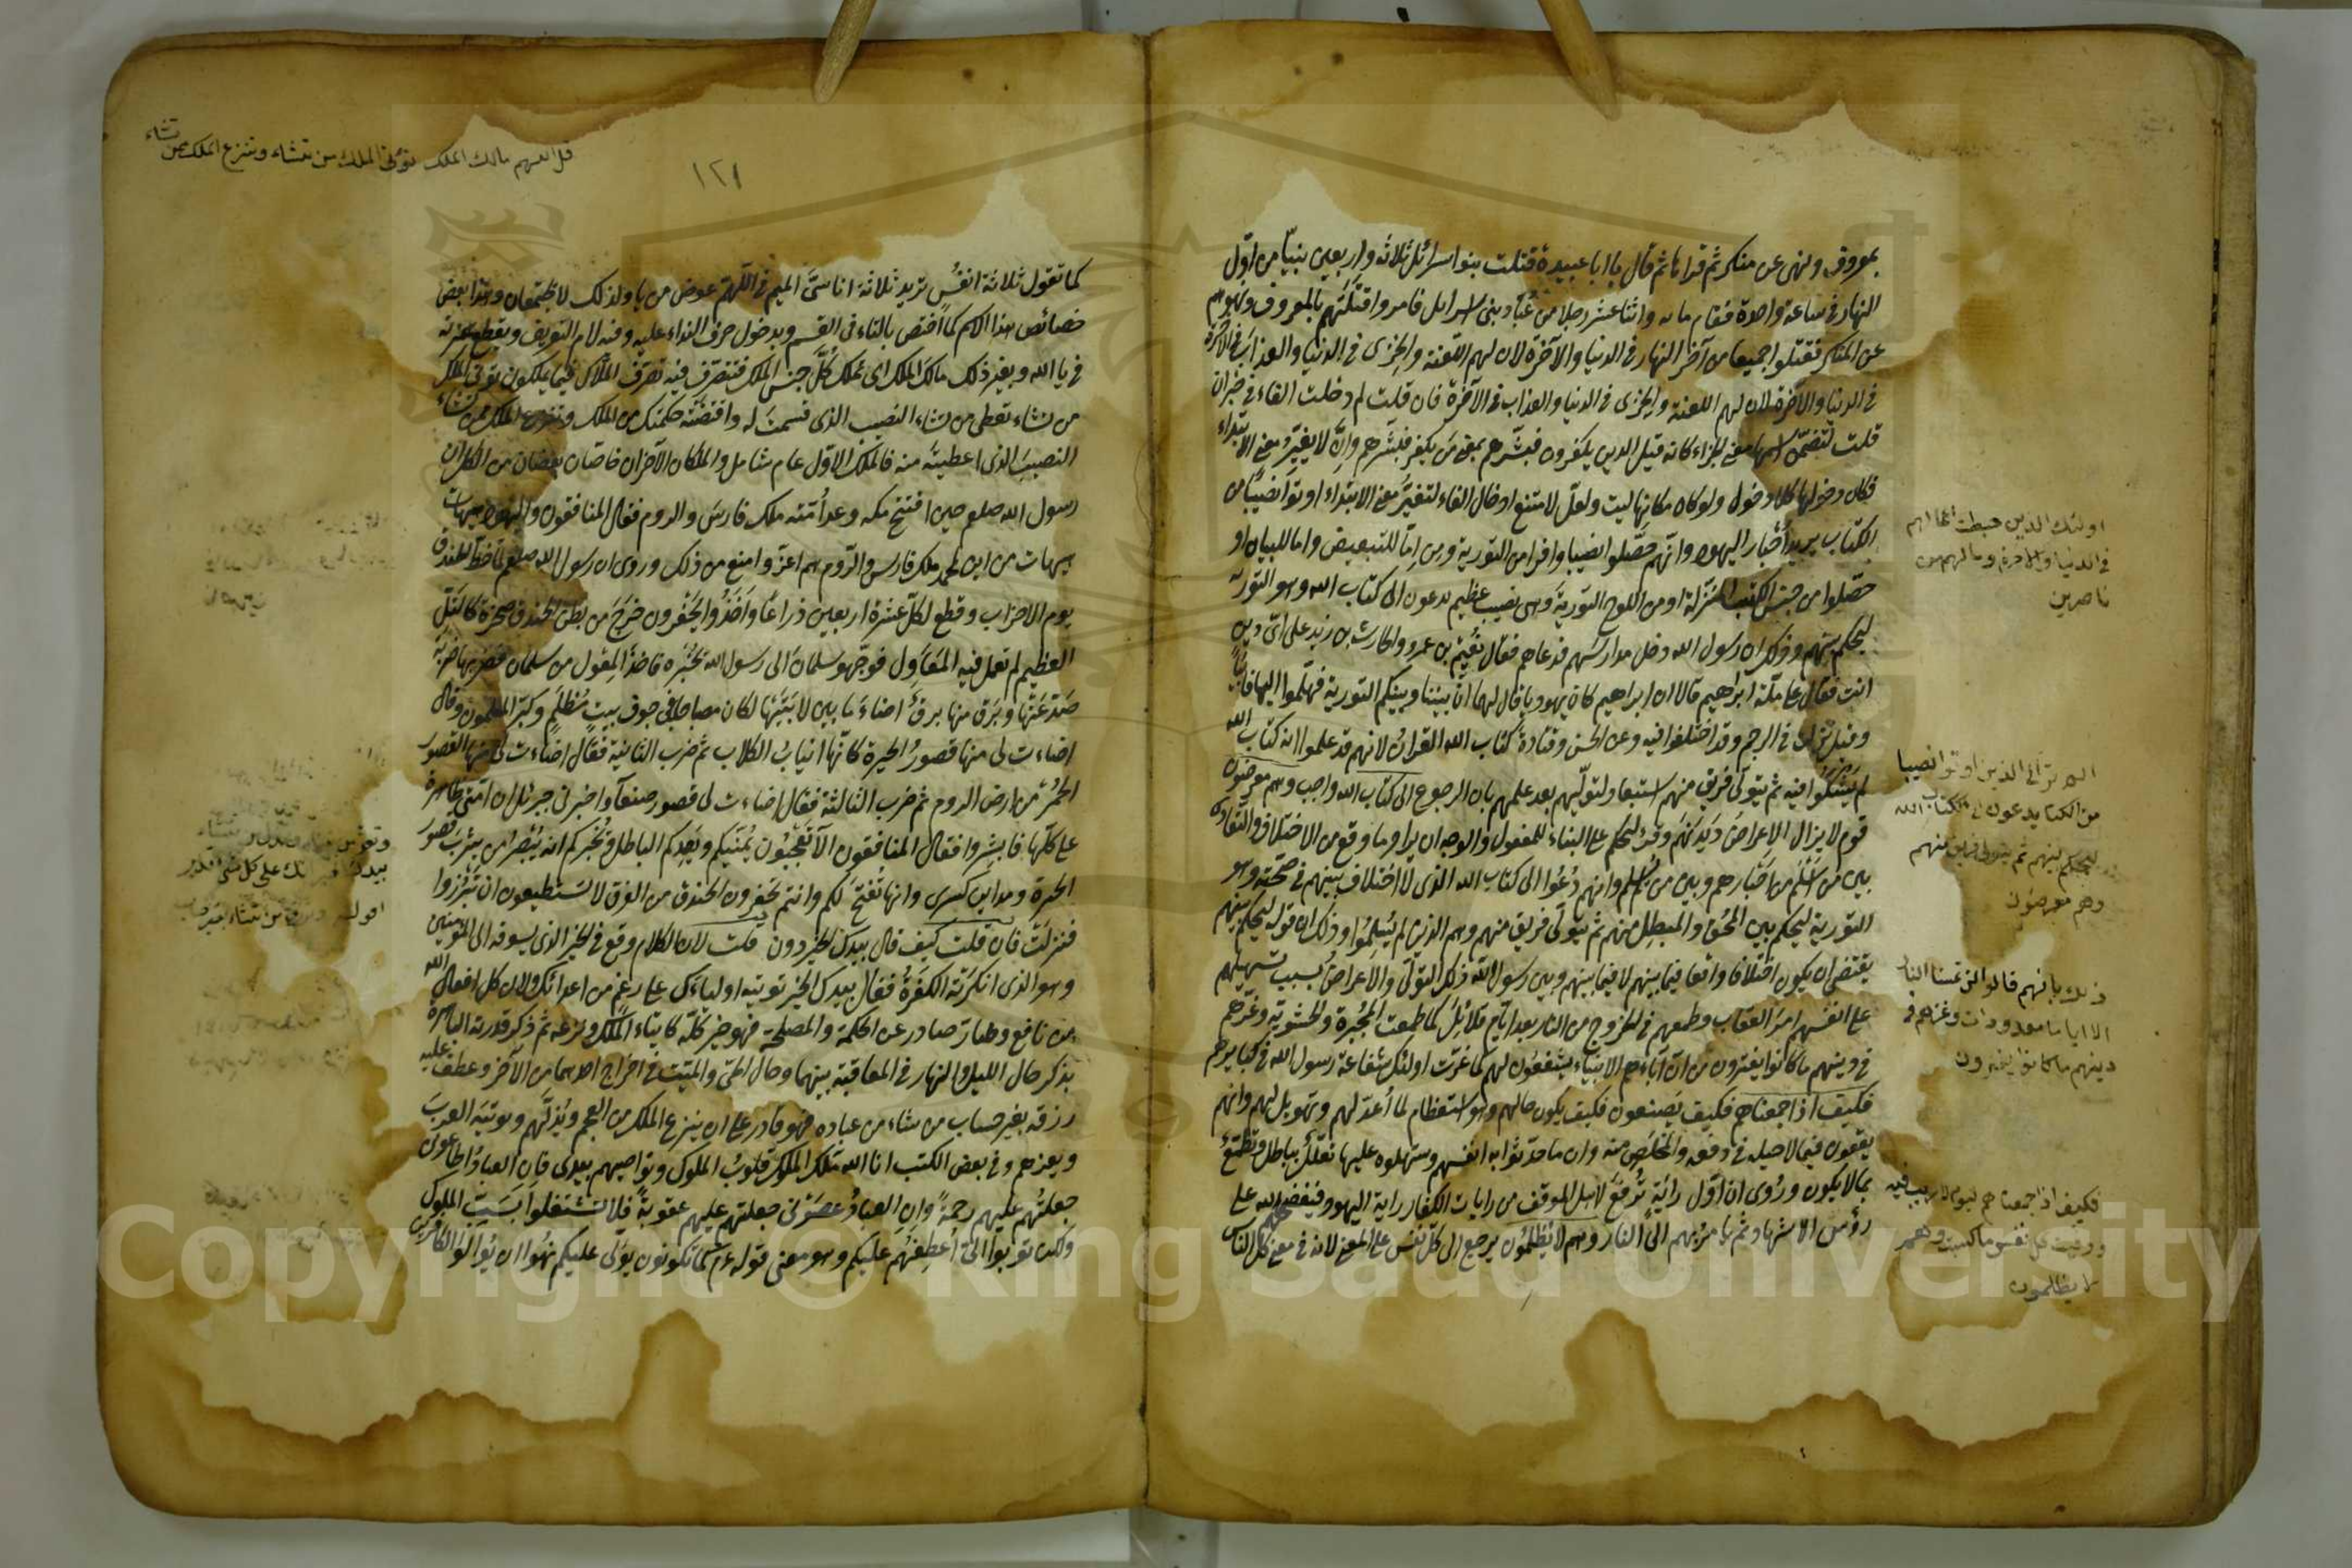 بمعروف ونهى عن منكر ثم قراها ثم قال يا ابا عبيدة قتلت بنو اسرائل ثلاثة واربعين نبيّا من اوّل
النهار في ساعة واحدة فقام مايه واثنا عشر رجلا من عُبّاد بنى اسرايل فامروا قتلتهم بالمعروف ونهوهم
عن المنكر فقتلوا جميعا من آخر النهار في الدنيا والآخرة لان لهم اللعنة والخزى في الدنيا والعذاب في الآخرة
في الدنيا والآخرة لان لهم اللعنة والخزى في الدنيا والعذاب في الآخرة فان قلت لم دخلت الفاء في خبر ان
قلت لتضمّن اسمها معنى الجزاء كانه قيل الذين يكفرون فبشّرهم بمعنى من يكفر فبشرهم وانّ لا يغيّر معنى الابتداء
فكان دخولها كلا دخول ولو كان مكانها ليت ولعلّ لامتنع ادخال الفاء لتغيّر معنى الابتداء اوتوا نصيبًا من
الكتاب يريد أحبار اليهود وانّهم حصّلوا نصيبا وافرا من التورية ومن امّا للتبعيض واما للبيان او
حصّلوا من جنس الكتب المنزلة او من اللوح التورية وهى نصيب عظيم يدعون الى كتاب الله وهو التورية
ليحكم بينهم وذلك ان رسول الله دخل مدارسهم فدعاهم فقال نُعَيْم بن عمرو والحارث بن زيد على اىّ دين
انت فقال على ملّة ابراهيم قالا ان ابراهيم كان يهوديا قال لهما انّ بيننا وبينكم التورية فهلمّوا اليها فابيا
وقيل نزلت في الرجم وقد اختلفوا فيه وعن الحسن وقتادة كتاب الله القران لانهم قد علموا انه كتاب الله
لم يشكّوا فيه ثم يتولّى فريق منهم استبعاد لتولّيهم بعد علمهم بان الرجوع الى كتاب الله واجب وهم معرضون
قوم لا يزال الاعراض دَيْدَنَهم وقرئ ليُحكم على البناء للمفعول والوجه ان يراد ما وقع من الاختلاف والتعادى
بين من اسلم من احبارهم وبين من لم يسلم وانهم دُعُوا الى كتاب الله الذى لا اختلاف بينهم في صحّته وهو
التورية ليحكم بين المُحق والمبطل منهم ثم يتولّى فريق منهم وهم الذين لم يُسلِموا وذلك ان قوله ليحكم بينهم
يقتضى ان يكون اختلافا واقعا فيما بينهم لا فيما بينهم وبين رسول الله ذلك التولّى والاعراض بسبب تسهيلهم
على انفسهم امر العقاب وطمعهم في الخروج من النار بعد ايّام قلائل كما طمعت المُجبرة والحشوية وغرّهم
في دينهم ما كانوا يفترون من ان آباءهم الانبياء يشفعون لهم كما غرّت اولئك شفاعة رسول الله في كبايرهم
فكيف اذا جمعناهم فكيف يصنعون فكيف يكون حالهم وهو استعظام لما أُعدّ لهم وتهويل لهم وانهم
يقعون فيما لا حيلة في دفعه والمخلص منه وان ما حدّثوا به انفسهم وسهلوه عليها تعلّلٌ بباطل وتطمّعٌ
بما لا يكون وروى ان اوّل رايةٍ تُرفع لاهل الموقف من رايات الكفار راية اليهود فيفضحهم الله على
رؤس الاشهاد ثم يأمر بهم الى النار وهم لا يُظلمون يرجع الى كلّ نفس على المعنى لانه في معنى كل الناس
اولئك الذين حبطت اعمالهم
في الدنيا والاخرة وما لهم من
ناصرين
الم تر الى الذين اوتوا نصيبا
من الكتاب يدعون الى كتاب الله
ليحكم بينهم ثم يتولى فريق منهم
وهم معرضون
ذلك بانهم قالوا لن تمسنا النار
الا اياما معدودات وغرهم في
دينهم ما كانوا يفترون
فكيف اذا جمعناهم ليوم لا ريب فيه
ووفيت كل نفس ما كسبت وهم
لا يظلمون
قل اللهم مالك الملك تؤتى الملك من تشاء وتنزع الملك ممن تشاء
١٢١
كما تقول ثلاثة انفُسٍ تريد ثلاثة اناسىَّ الميم في اللّهمّ عوض من يا ولذلك لا يجتمعان وهذا بعض
خصائص هذا الاسم كما اختص بالتاء في القسم وبدخول حرف النداء عليه وفيه لام التعريف وبقطع همزته
في يا الله وبغير ذلك مالك الملك اى تملك كُلَّ جنس الملك فتتصرّف فيه تصرّف المُلّاك فيما يملكون تؤتى الملك
من تشاء تعطى من تشاء النصيب الذى قسمتَ له واقتضَتْه حكمتك من الملك وتنزع الملك ممن تشاء
النصيبَ الذى اعطيتَه منه فالملك الاوّل عام شامل والملكان الآخران خاصّان بعضان من الكل
رسول الله صلعم حين افتتح مكه وعد أُمّته ملك فارسَ والروم فقال المنافقون واليهود هيهات
هيهات من اين لمحمد ملك فارس والرّوم هم اعزّ وامنع من ذلك وروى ان رسول الله صلعم لما خطّ الخندق
يوم الاحزاب وقطع لكلّ عشرةٍ اربعين ذراعًا وأخذوا يَحْفِرون خرج من بطن الخندق صخرة كالتلّ
العظيم لم تعمل فيه المَعَاوِل فوجّهوا سلمان الى رسول الله يُخبره فاخذ المِعْول من سلمان فضربها ضربة
صَدَعَتْها وبَرَق منها برقٌ اضاءَ ما بين لابَتَيْها لكان مصباحا في جوف بيتٍ مُظلمٍ وكبّر المسلمون وقال
اضاءت لى منها قصورُ الحيرة كانّها انيابُ الكلاب ثم ضرب الثانية فقال اضاءت لى منها القصور
الحُمْرُ من ارض الروم ثم ضرب الثالثة فقال اضاءت لى قصور صنعآ واخبرنى جبرئل ان امّتى ظاهرة
على كلّها فابشروا فقال المنافقون الا تَعْجَبون يُمَنّيكم ويَعِدكم الباطل ويُخبركم انه يُبْصِر من يثربَ قصور
الحيرة ومداين كسرى وانها تُفتَح لكم وانتم تحفرون الخندق من الفرق لا تستطيعون ان تَبْرُزوا
فنزلت فان قلت كيف قال بيدك الخير دون قلت لان الكلام وقع في الخير الذى يسوقه الى المؤمنين
وهو الذى انكرَتْه الكفَرةُ فقال بيدك الخير توتيه اولياءَك على رغم من اعدائك ولان كل افعال الله
من نافع وضار صادر عن الحكمة والمصلحة فهو خير كلّه كايتاء الملك ونزعه ثم ذكر قدرته الباهرة
بذكر حال الليل والنهار في المعاقبة بينهما وحال الحىّ والميّت في اخراج احدهما من الآخر وعطف عليه
رزقه بغير حساب من شاء من عباده فهو قادر على ان ينزع الملك من العجم ويُذلّهم ويوتيَه العربَ
ويعزهم وفي بعض الكتب انا الله مَلِك الملوك قلوبُ الملوك ونواصيهم بيدى فان العبادُ اطاعونى
جعلتُهم عليهم رحمةً وانِ العبادُ عصَوْنى جعلتهم عليهم عقوبةً فلا تشتغلوا بسَبّ الملوك
ولكن توبوا الىّ أعطِفْهُم عليكم وهو معنى قوله عم كما تكونون يولّى عليكم نُهوا ان يُوالُوا الكافرين
بيدك الخير انك على كل شئ قدير